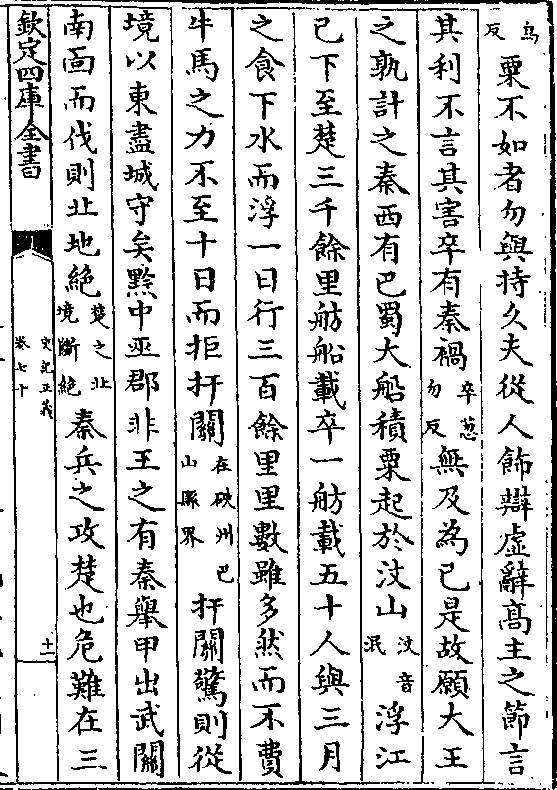 烏反粟不如者勿與持久夫從人飾辯虛辭高主之節言
其利不言其害卒有秦禍卒怱勿反無及為已是故願大王
之孰計之秦西有巴蜀大船積粟起於汶山汶音泯浮江
已下至楚三千餘里舫船載卒一舫載五十人與三月
之食下水而浮一日行三百餘里里數雖多然而不費
牛馬之力不至十日而拒扞關在硤州巴山縣界扞關驚則從
境以東盡城守矣黔中巫郡非王之有秦舉甲出武關
南面而伐則北地絕楚之北境斷絕秦兵之攻楚也危難在三
欽定四庫全書
史記正義
卷七十
十一